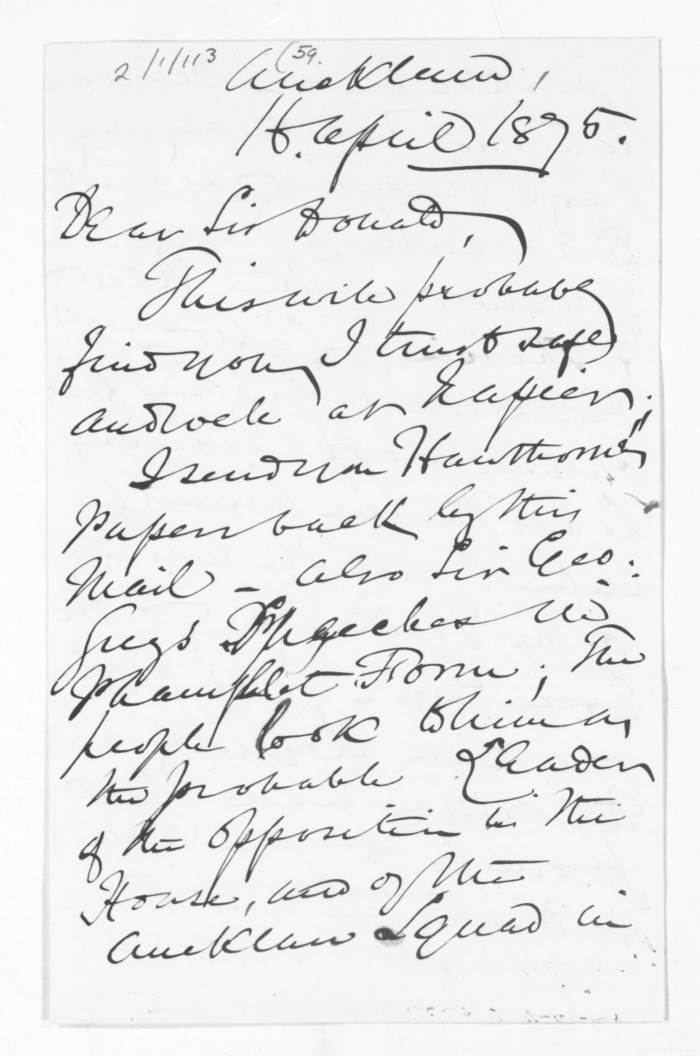 2/1/113 (59.
Auckland,
16. April 1875.
Dear Sir Donald,
This will probably
find you, I trust safe
and well at Napier.
I send you Hawthorne's
Paper back by this
Mail - also Sir Geo:
Greys Speeches in
Phamphlet Form; The
people look to him as
the probable Leader
of the opposition in the
House, and of the
Auckland Squad in